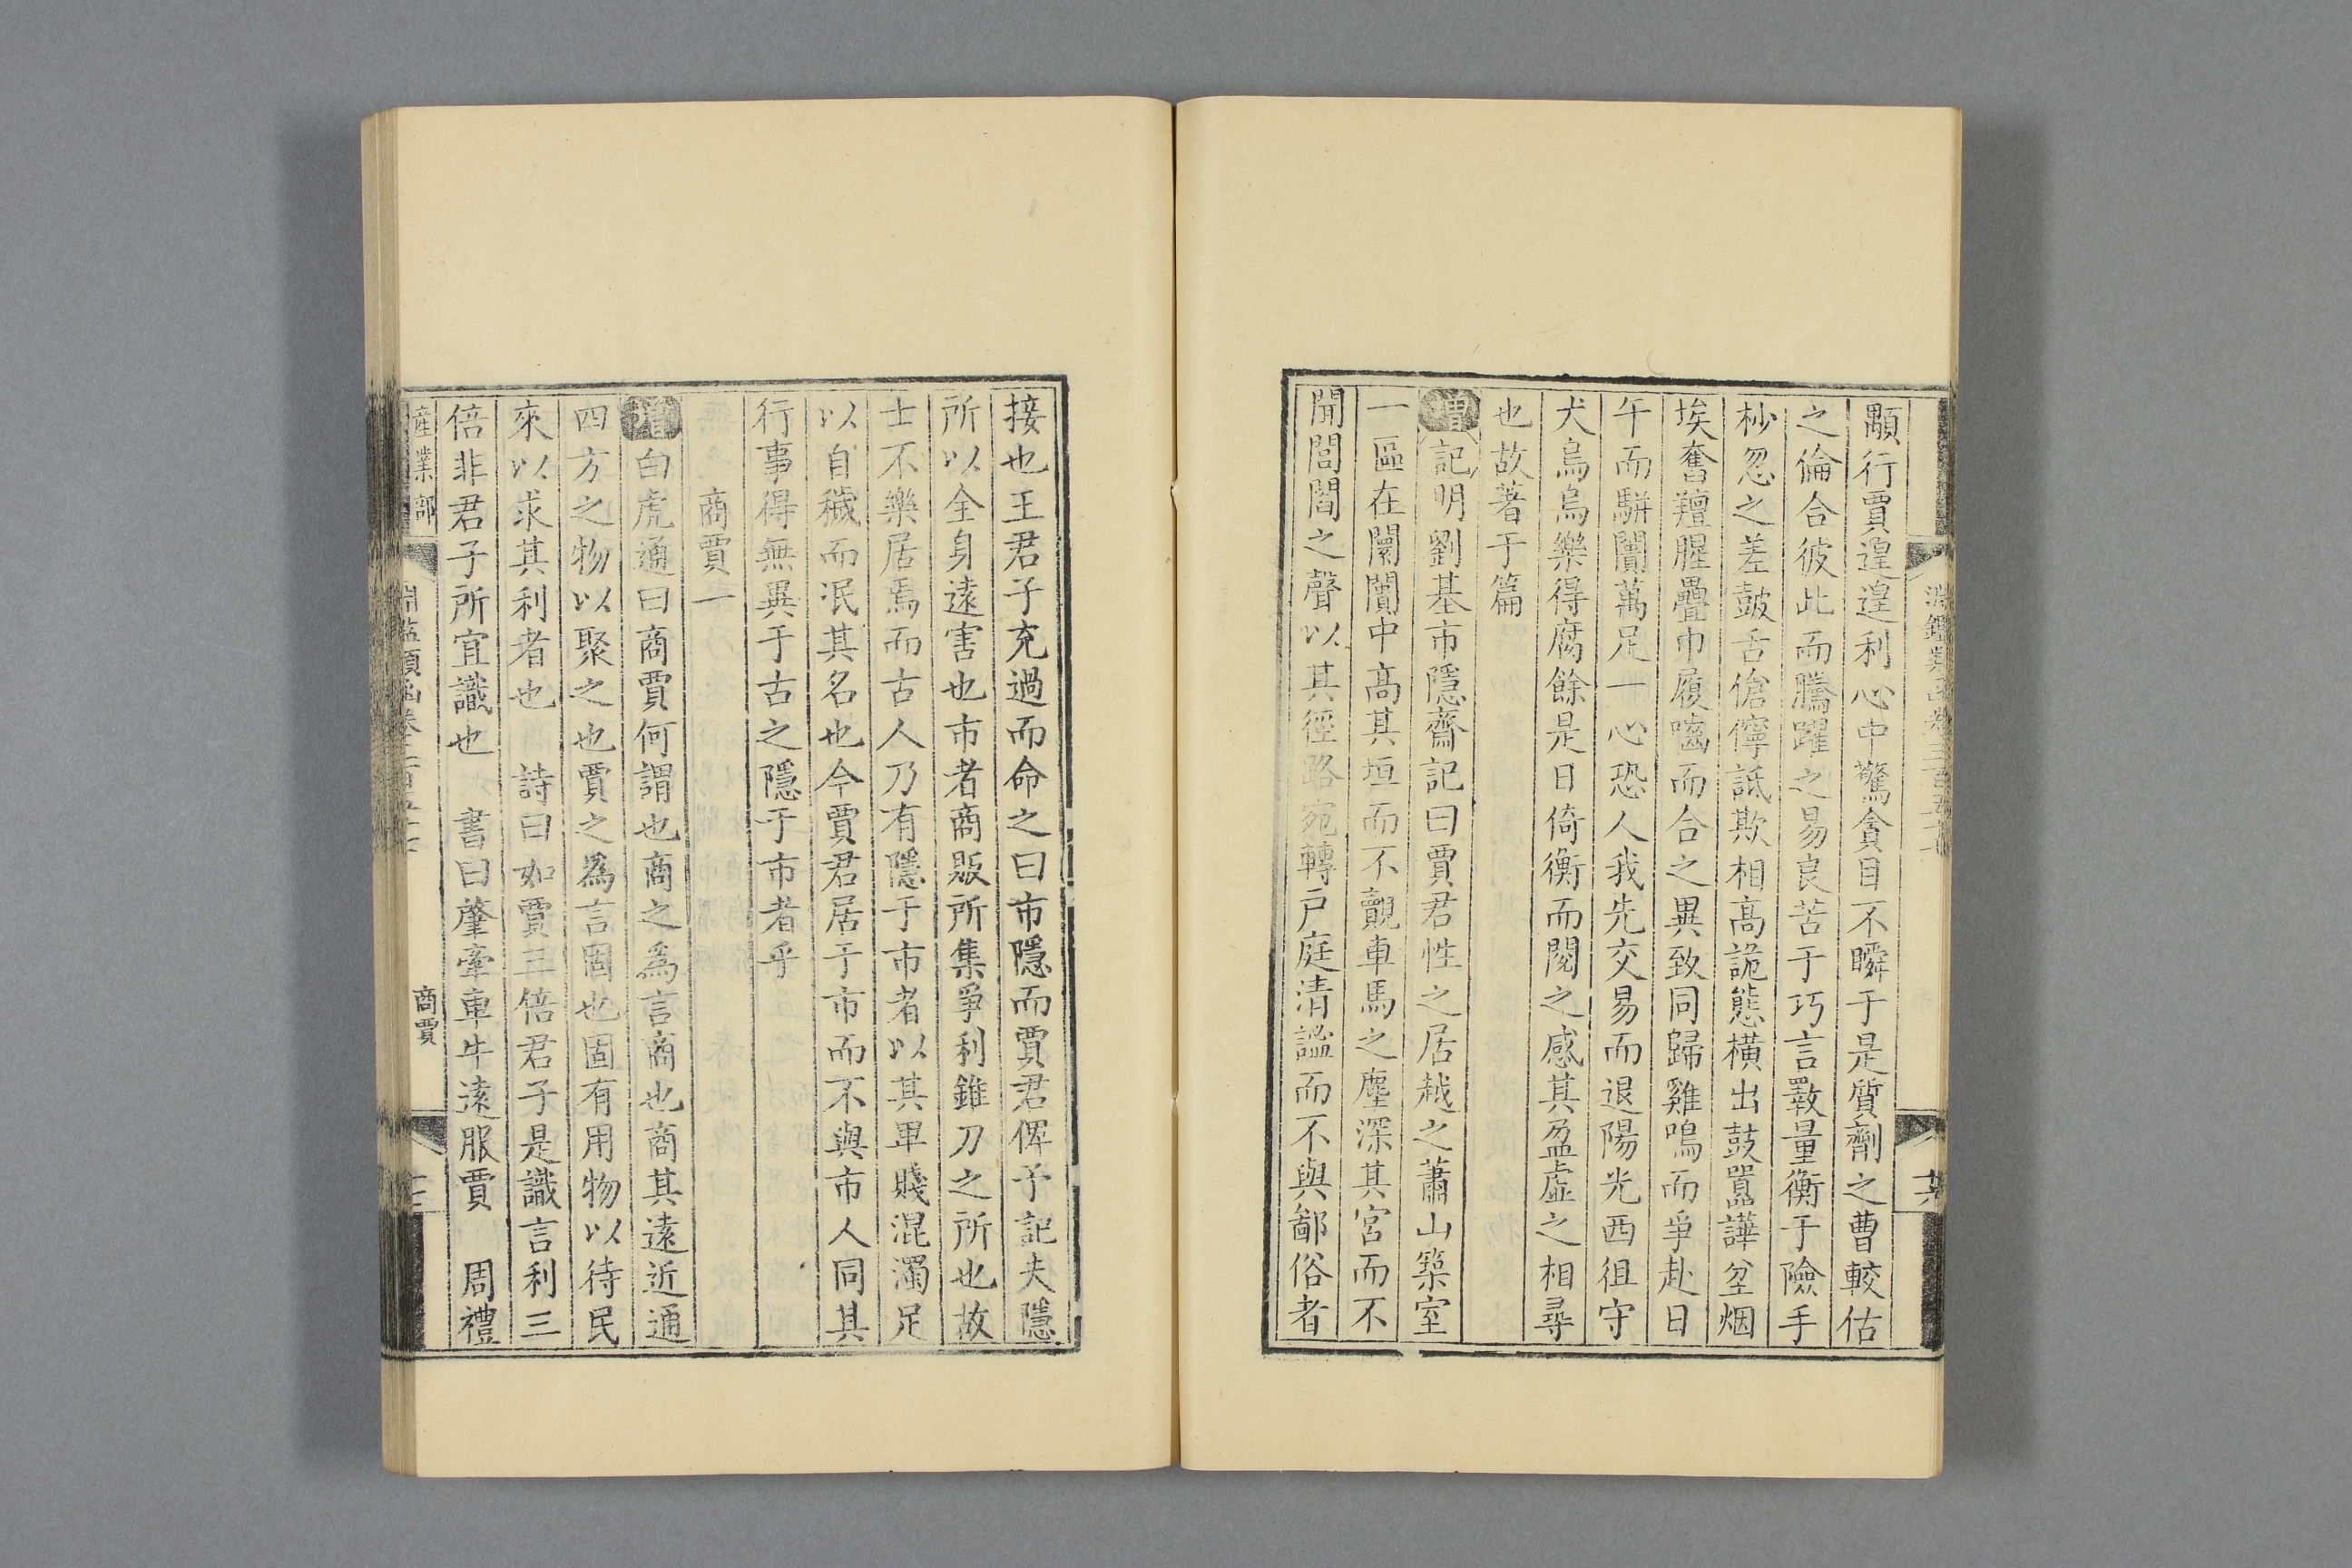 顒行賈遑遑利心中驚貪目不瞬于是質劑之曹較估
之倫合彼此而騰躍之易良苦于巧言斁量衡于險手
杪忽之差鼓舌傖儜詆欺相高詭態橫出鼓囂譁坌烟
埃奮羶腥疊巾履嚙而合之異致同歸雞鳴而爭赴日
午而駢闐萬足一心恐人我先交易而退陽光西徂守
犬烏烏樂得腐餘是日倚衡而閱之感其盈虛之相尋
也故著于篇
增記明劉基市隱齋記曰賈君性之居越之蕭山築室
一區在闤闠中高其垣而不覿車馬之塵深其宮而不
聞閭閻之聲以其徑路宛轉戶庭清謐而不與鄙俗者
接也王君子充過而命之曰市隱而賈君俾予記夫隱
所以全身遠害也市者商販所集爭利錐刀之所也故
士不樂居焉而古人乃有隱于市者以其卑賤混濁足
以自穢而泯其名也今賈君居于市而不與市人同其
行事得無異于古之隱于市者乎
商賈一
增白虎通曰商賈何謂也商之為言商也商其遠近通
四方之物以聚之也賈之為言固也固有用物以待民
來以求其利者也 詩曰如賈三倍君子是識言利三
倍非君子所宜識也 書曰肇牽車牛遠服賈 周禮
產業部
淵鑑類函卷三百五十七
商賈